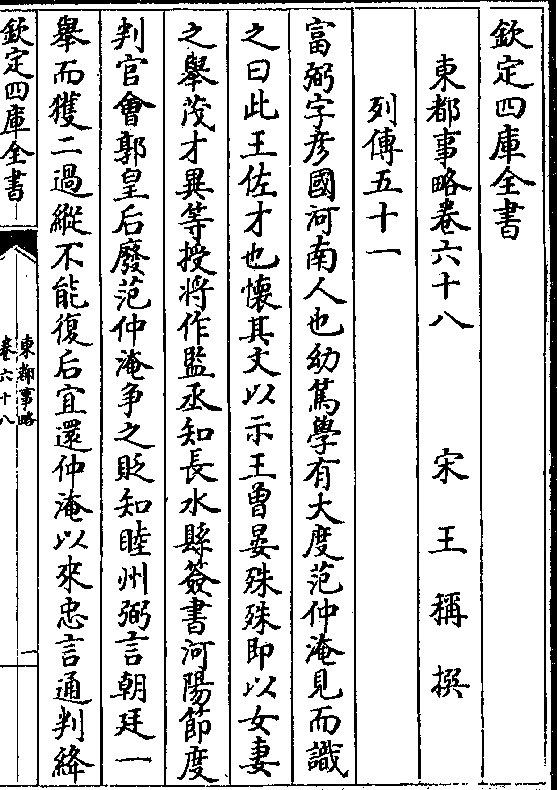 欽定四庫全書
東都事略卷六十八　宋王稱撰
列傳五十一
富弼字彦國河南人也幼篤學有大度范仲淹見而識
之曰此王佐才也懷其文以示王曾晏殊殊即以女妻
之舉茂才異等授將作監丞知長水縣簽書河陽節度
判官會郭皇后廢范仲淹争之貶知睦州弼言朝廷一
舉而獲二過縱不能復后宜還仲淹以來忠言通判絳
欽定四庫全書
東都事略
卷六十八
一